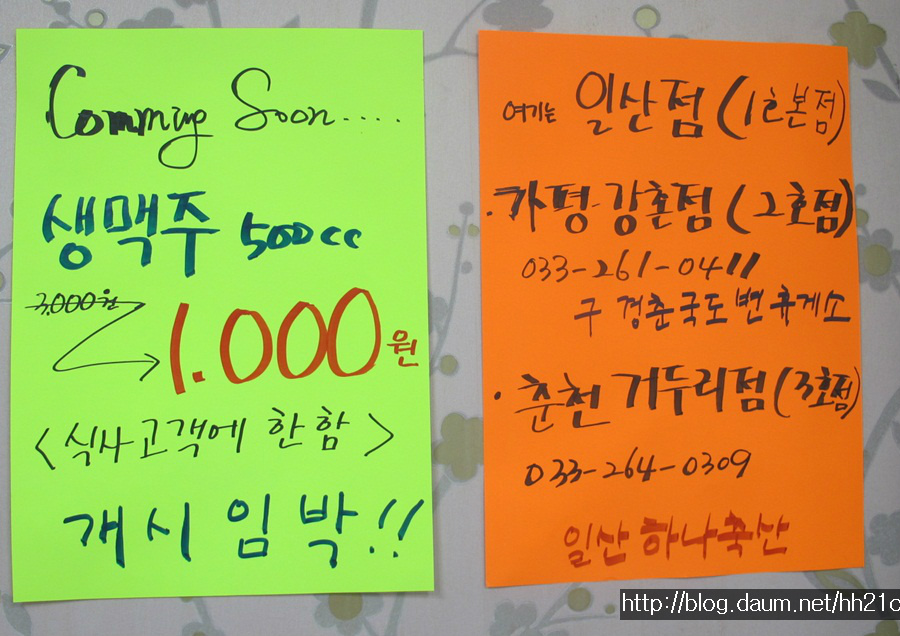 Comming Soon.....
생맥주 500cc
3,000원
1.000원
<식사고객에 한함>
개시임박!!
여기는 일산점(1호본점)
·가평·강촌점(2호점)
033-261-0411
구 경춘국도변 휴게소
·춘천 거두리점(3호점)
033-264-0309
일산하나축산
http://blog.daum.net/hh21c